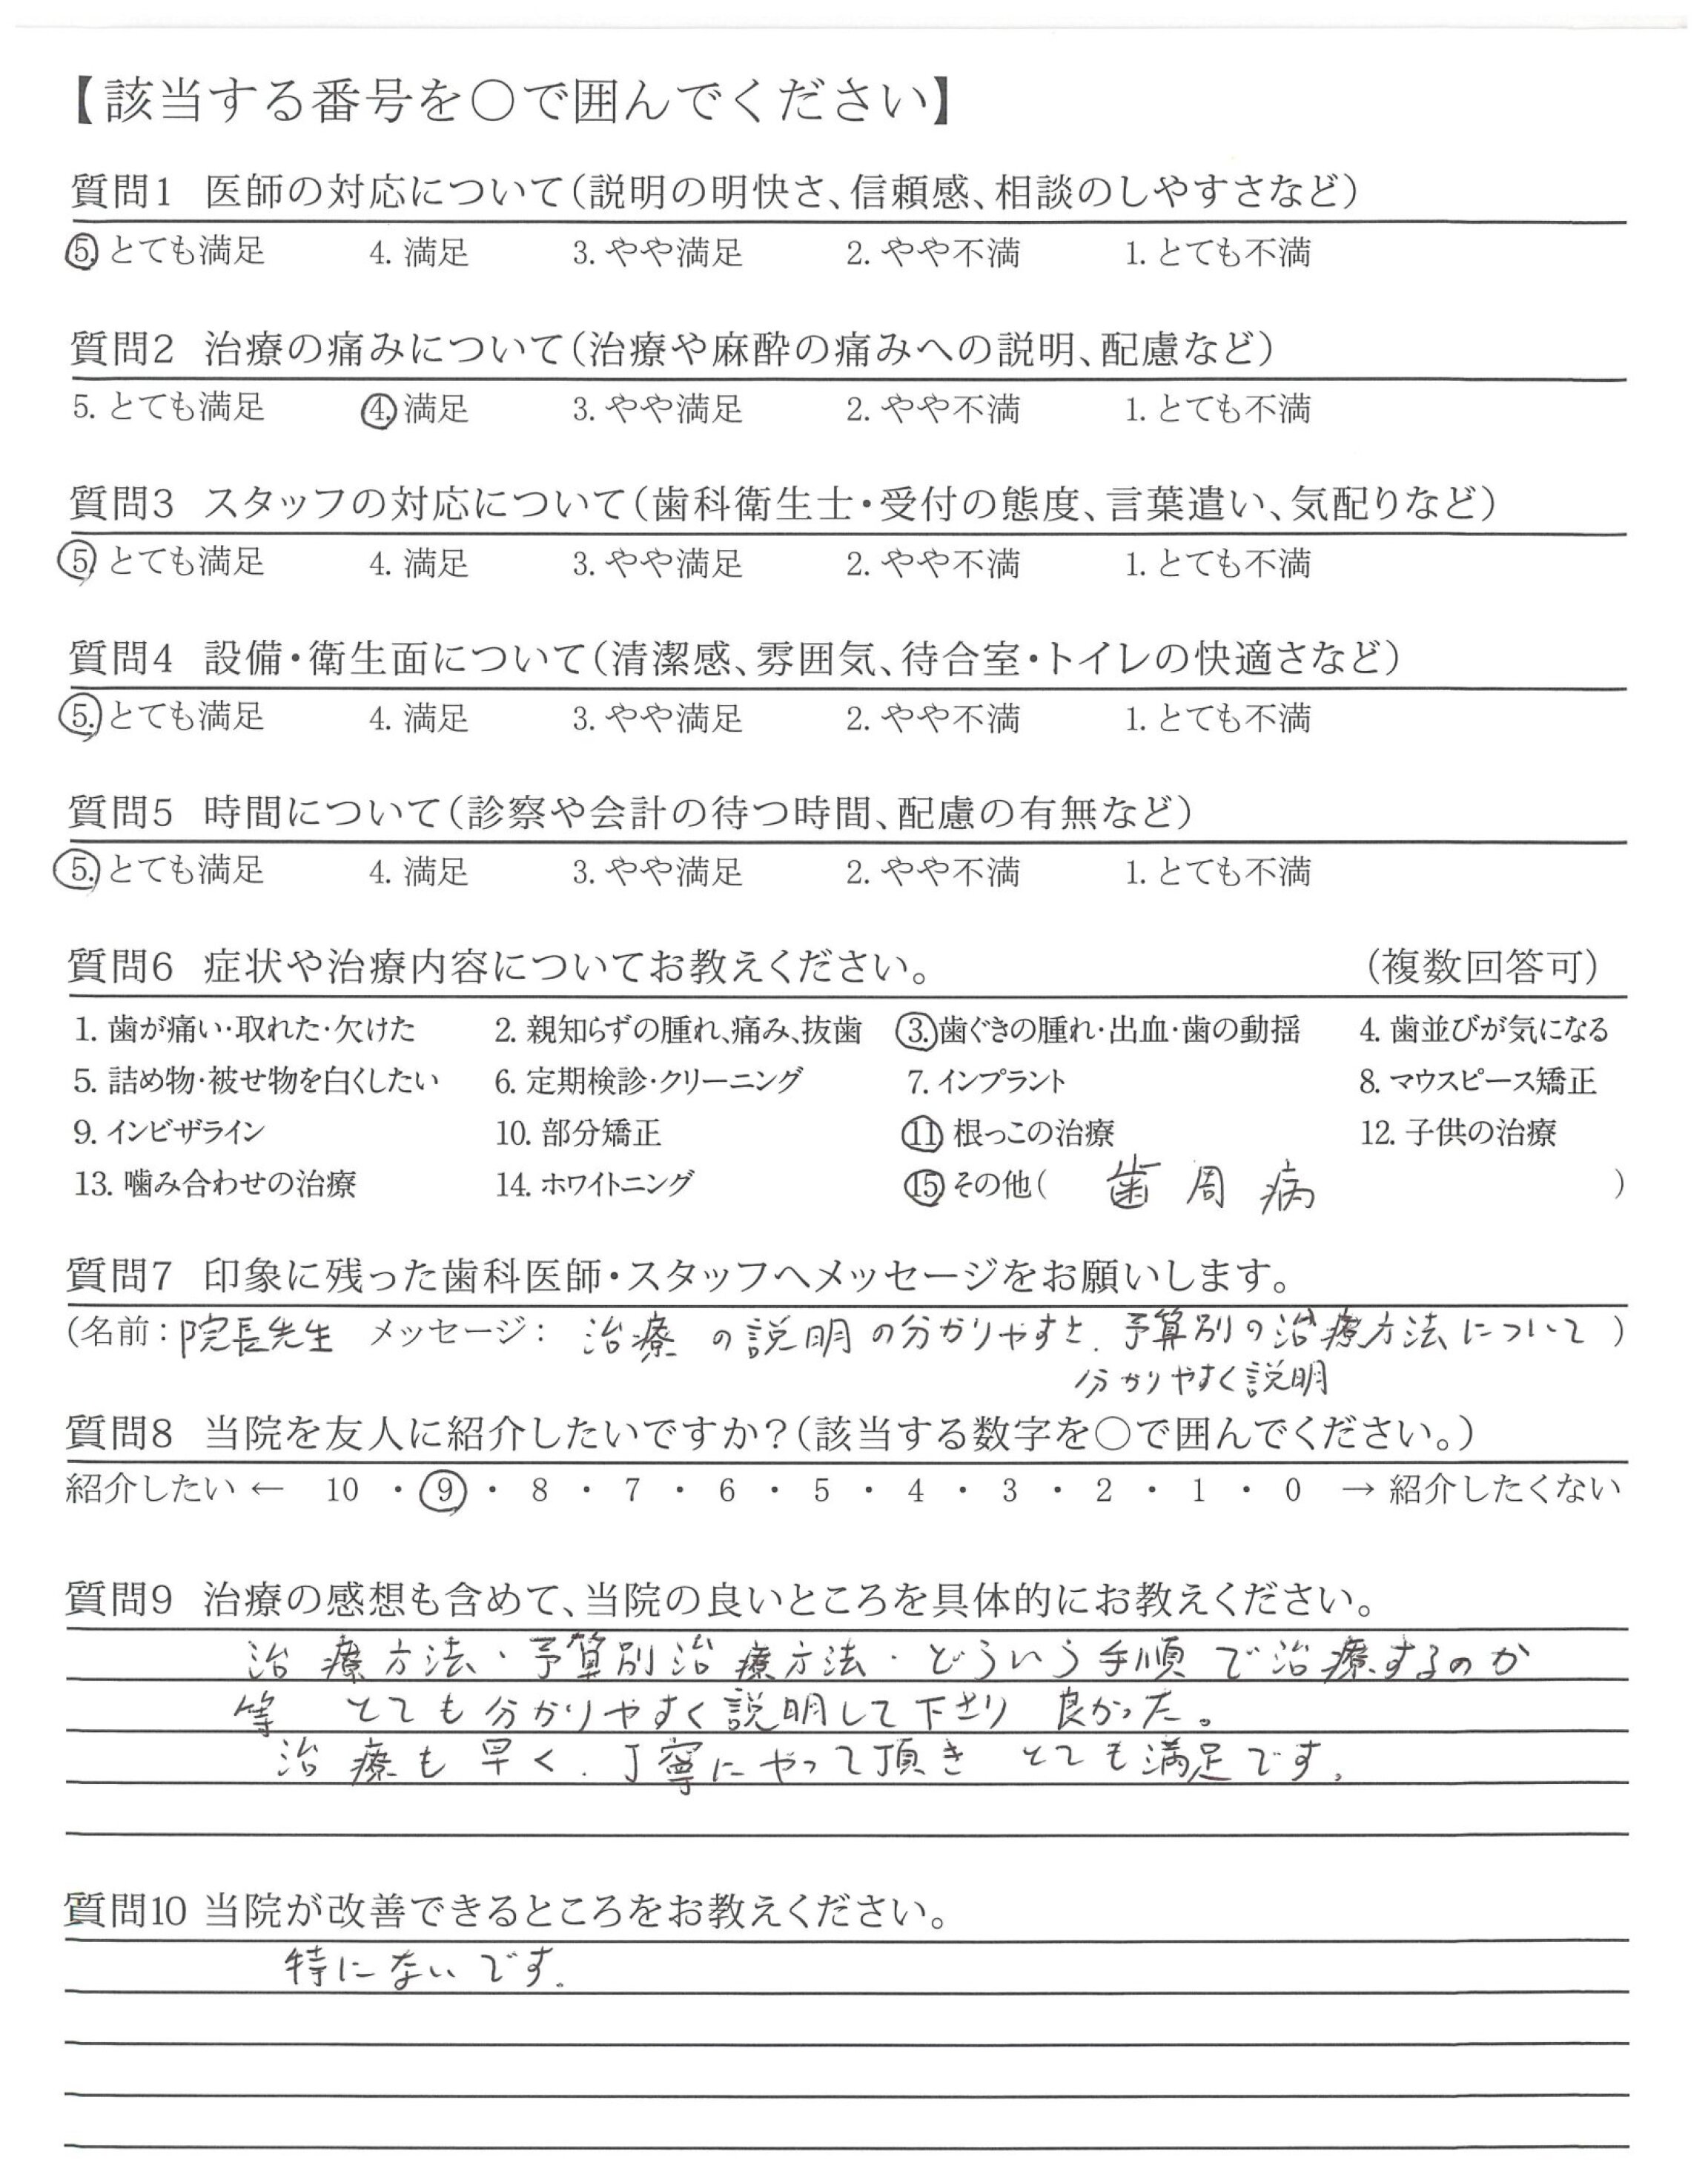 【該当する番号を〇で囲んでください】
質問1 医師の対応について(説明の明快さ、信頼感、相談のしやすさなど)
5. とても満足 4. 満足 3. やや満足 2. やや不満 1. とても不満
質問2 治療の痛みについて(治療や麻酔の痛みへの説明、配慮など)
5. とても満足 4. 満足 3. やや満足 2. やや不満 1. とても不満
質問3 スタッフの対応について(歯科衛生士・受付の態度、言葉遣い、気配りなど)
5. とても満足 4. 満足 3. やや満足 2. やや不満 1. とても不満
質問4 設備・衛生面について(清潔感、雰囲気、待合室・トイレの快適さなど)
5. とても満足 4. 満足 3. やや満足 2. やや不満 1. とても不満
質問5 時間について(診察や会計の待つ時間、配慮の有無など)
5. とても満足 4. 満足 3. やや満足 2. やや不満 1. とても不満
質問6 症状や治療内容についてお教えください。 (複数回答可)
1. 歯が痛い・取れた・欠けた 2. 親知らずの腫れ、痛み、抜歯 3. 歯ぐきの腫れ・出血・歯の動揺 4. 歯並びが気になる
5. 詰め物・被せ物を白くしたい 6. 定期検診・クリーニング 7. インプラント 8. マウスピース矯正
9. インビザライン 10. 部分矯正 11 根っこの治療 12. 子供の治療
13. 噛み合わせの治療 14. ホワイトニング 15 その他( 歯周病 )
質問7 印象に残った歯科医師・スタッフへメッセージをお願いします。
(名前:院長先生 メッセージ: 治療の説明の分かりやすさ、予算別の治療方法について )
分かりやすく説明
質問8 当院を友人に紹介したいですか?(該当する数字を〇で囲んでください。)
紹介したい ← 10 ・ 9 ・ 8 ・ 7 ・ 6 ・ 5 ・ 4 ・ 3 ・ 2 ・ 1 ・ 0 → 紹介したくない
質問9 治療の感想も含めて、当院の良いところを具体的にお教えください。
治療方法、予算別治療方法、どういう手順で治療するのか
等 とても分かりやすく説明して下さり 良かった。
治療も早く、丁寧にやって頂き とても満足です。
質問10 当院が改善できるところをお教えください。
特にないです。